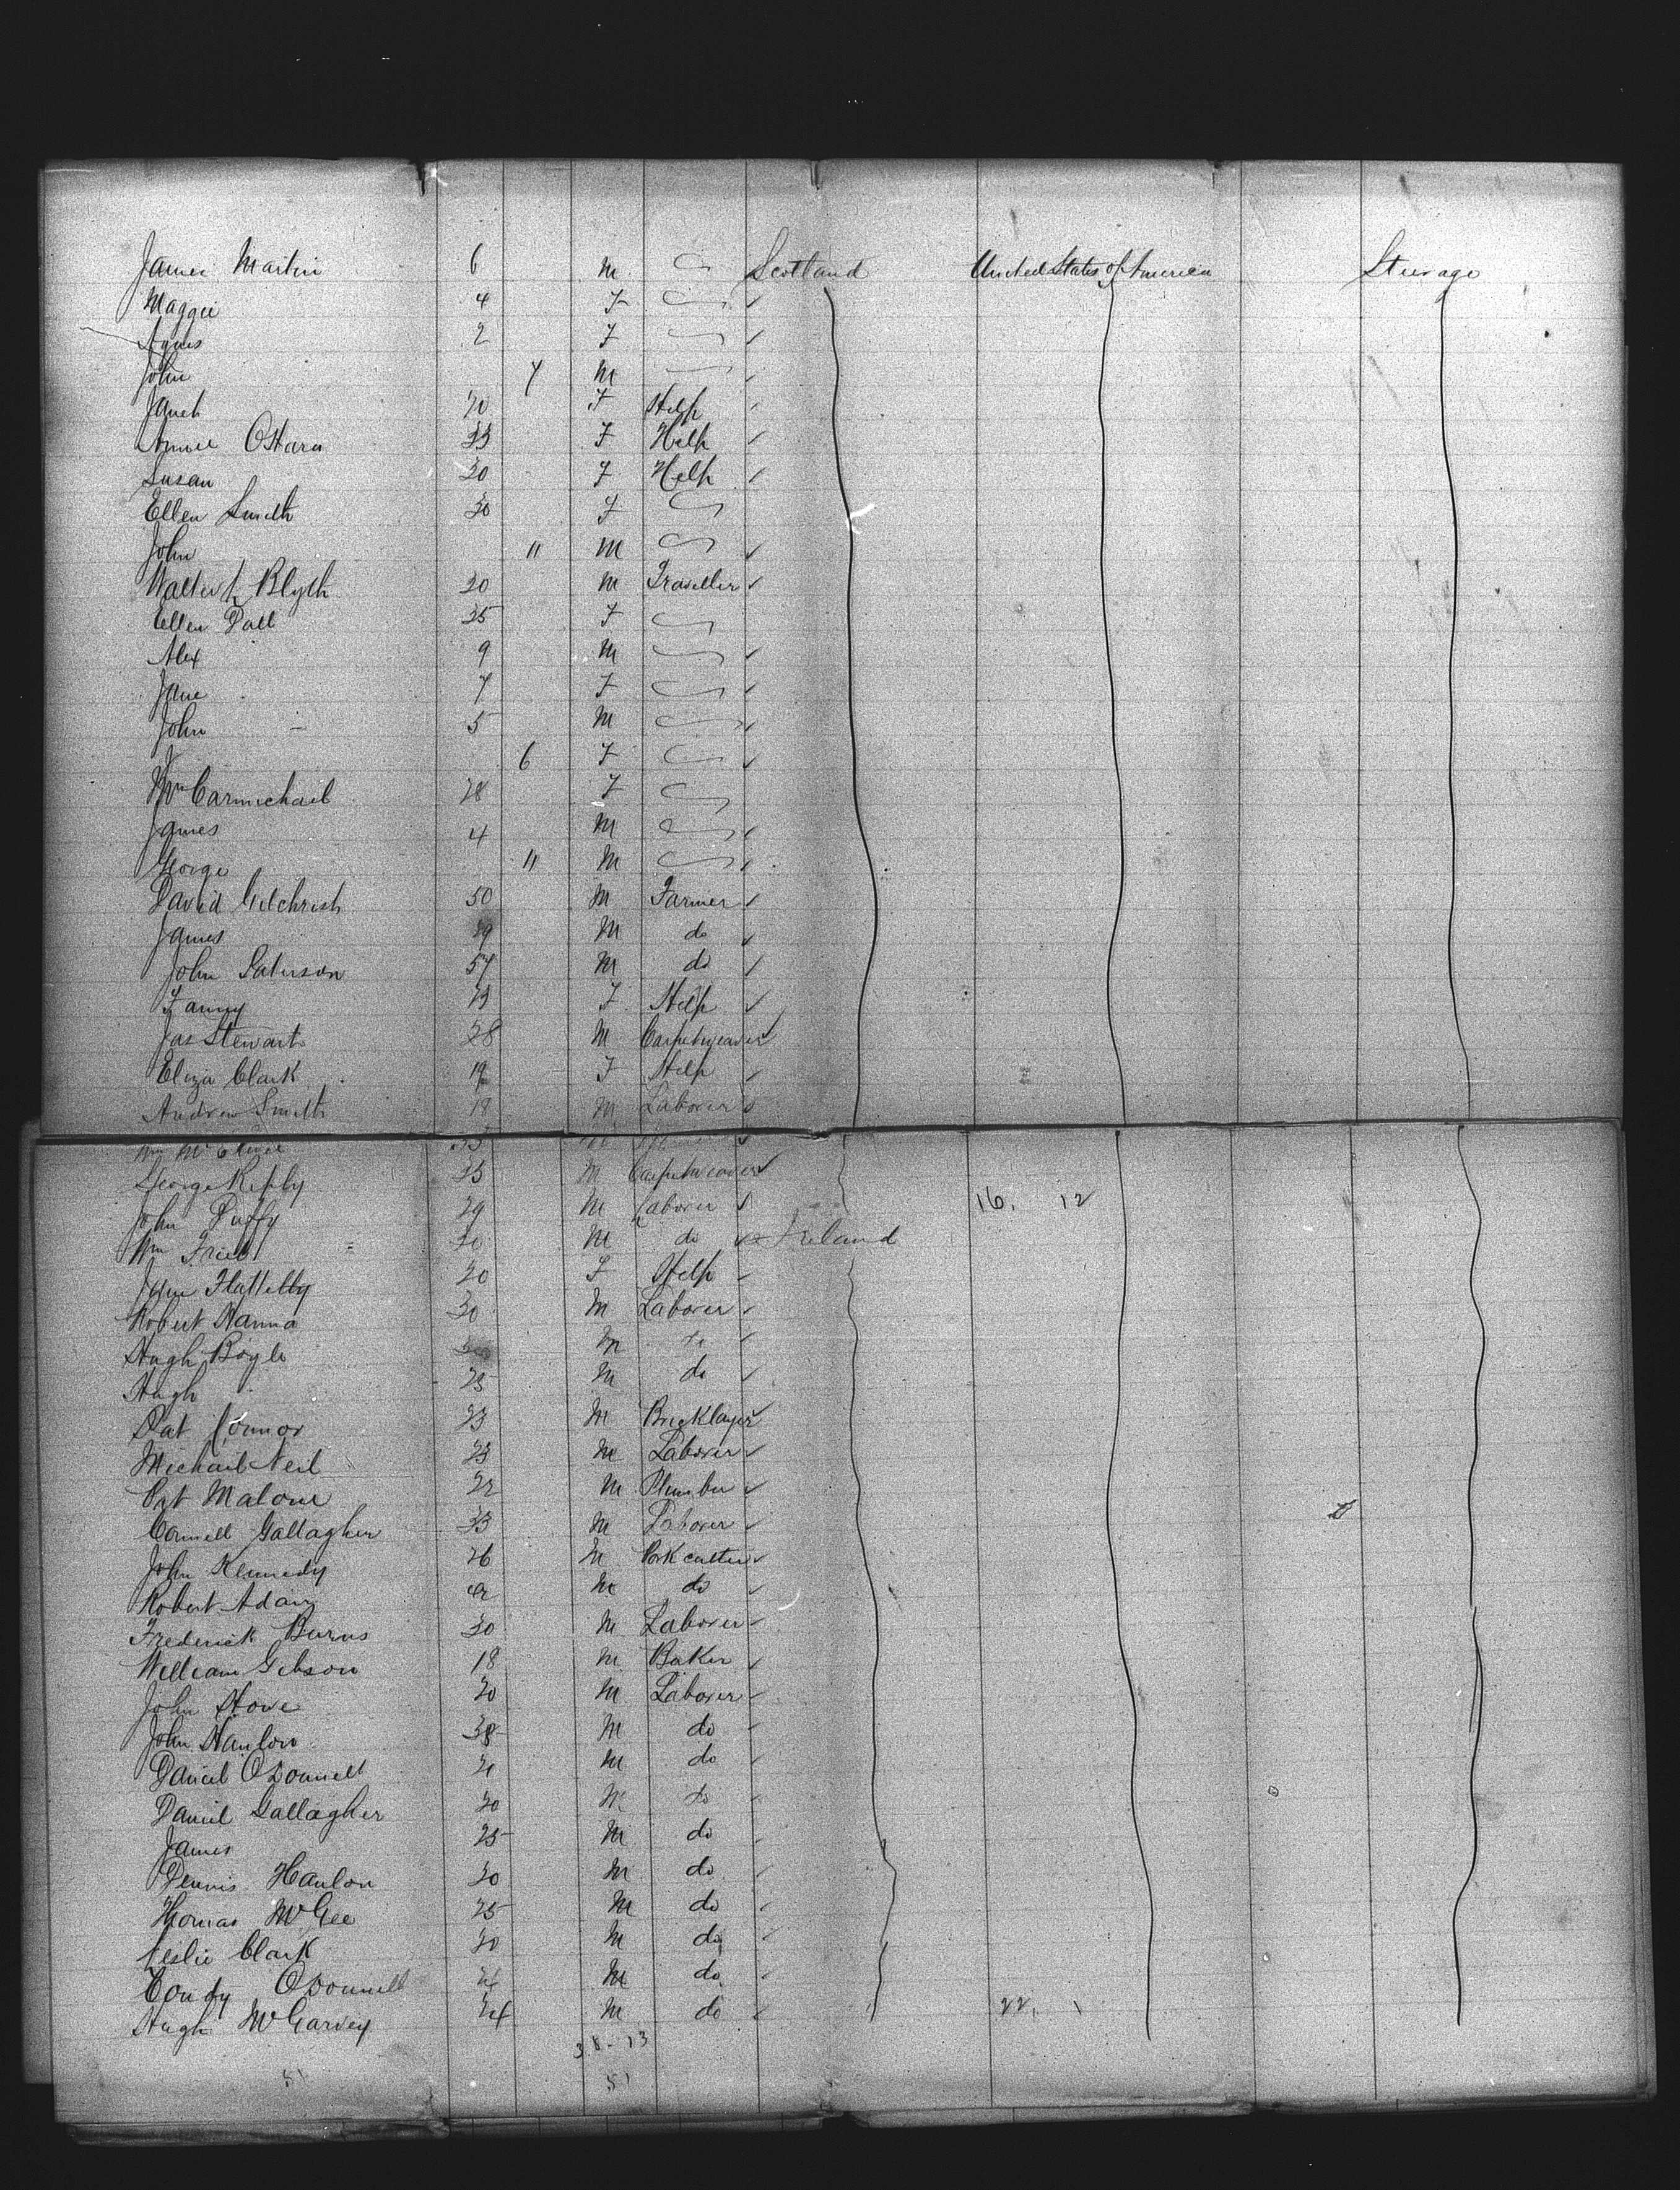 James Martin 6 M Scotland United States of America Steerage
Maggie 4 F
Agnes 2 F
John 7 M
Janet 20 F Help
Annie OHara 23 F Help
Susan 20 F Help
Ellen Smith 30 F
John 11 M
Walter Blyth 20 M Traveller
Ellen Dall 35 F
Alex 9 M
Jane 7 F
John 5 M
J 6 F
Carmichael 28 F
James 4 M
George 11 M
David Gilchrist 50 M Farmer
James M do
John Paterson 57 M do
Fanny 19 F Help
Jas Stewart 28 M Carpetweaver
Eliza Clark 19 F Help
Andrew Smith 18 M Laborer
Wm
George Reply 35 M Carpetweaver
John Duffy 29 M Laborer 16. 12
Wm Friel M do Ireland
Jane Flattelly 20 F Help
Robert Hanna 30 M Laborer
Hugh Boyle M do
Hugh 25 M do
Pat Connor 23 M Bricklayer
Michael Neil 23 M Laborer
Pat Malone 22 M Plumber
Connell Gallagher 33 M Laborer
John Kennedy 26 M Porkcutter
Robert Adams M do
Frederick Burns 30 M Laborer
William Gibson 18 M Baker
John Stone 20 M Laborer
John Hanlon 38 M do
Daniel ODonnell 21 M do
Daniel Gallagher 20 M do
James 25 M do
Dennis Hanlon 20 M do
Thomas McGee 25 M do
Leslie Clark 20 M do
Condy ODonnell M do
Hugh McGarvey 24 M do 22. 1
38-13
51 51